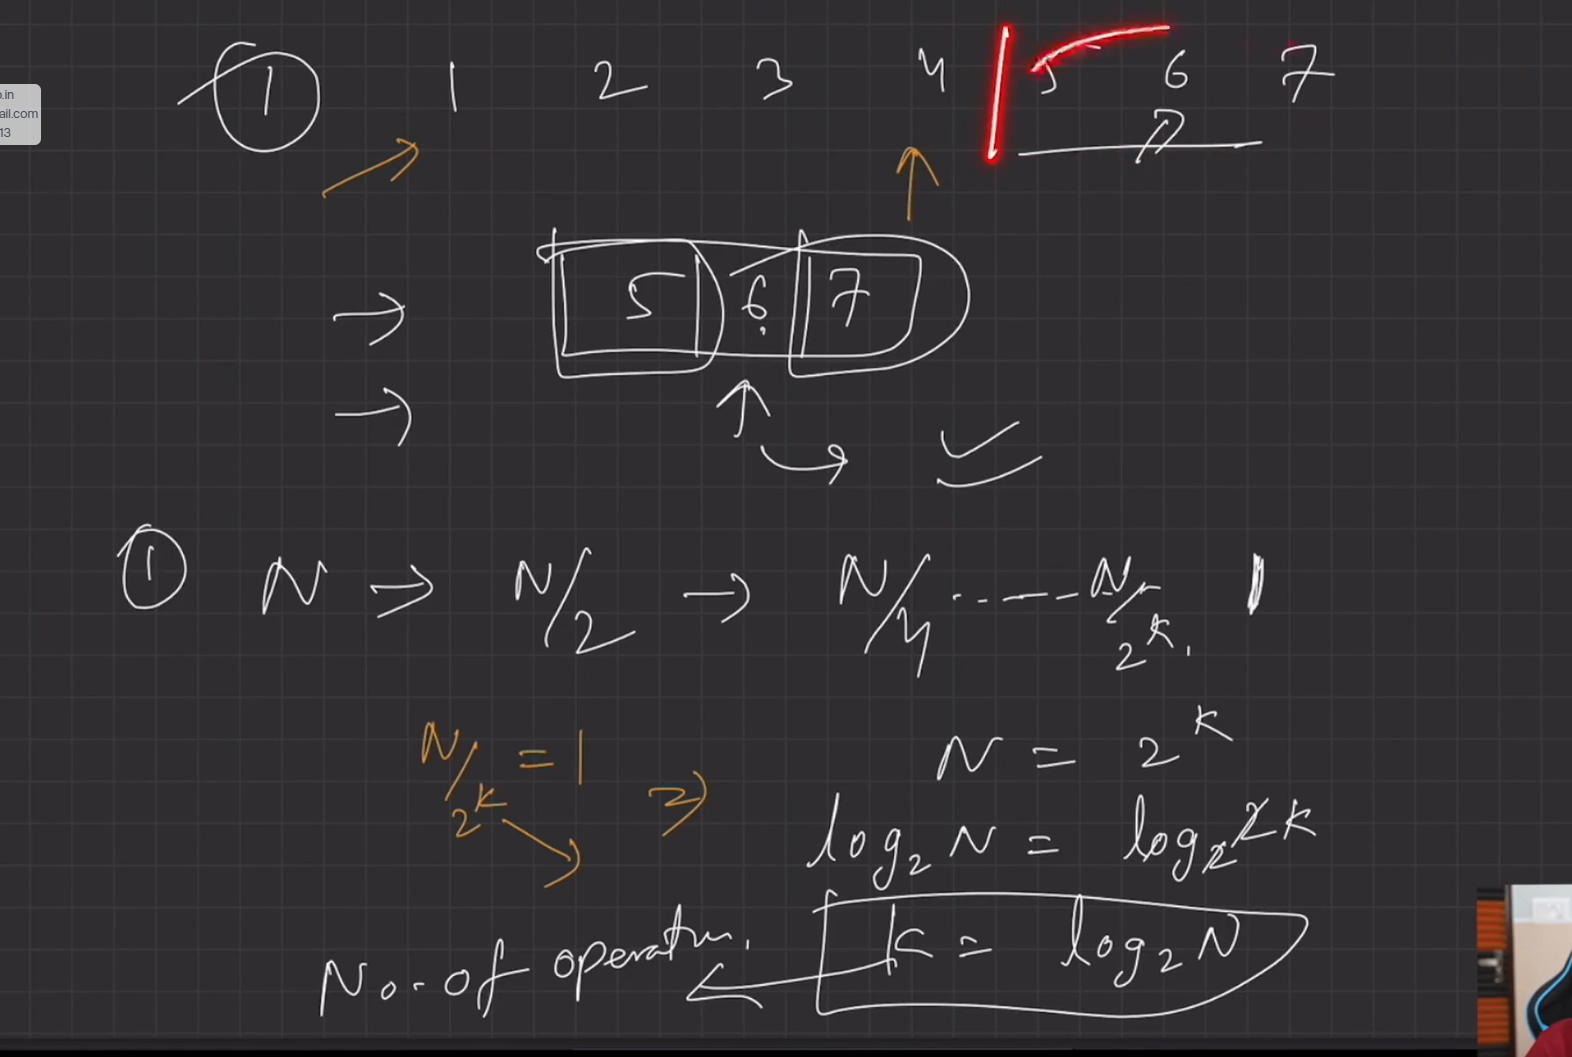 o.in
ail.com
13
① 1 2 3 4 5 6 7
5 6 7
① N → N/2 → N/4 ..---- N/2^k 1
N/2^k = 1
N = 2^k
log₂ N = log₂ 2^k
k = log₂ N
No. of operatn.